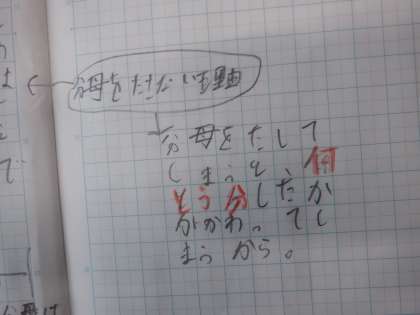 分母をたさない理由
分母をたして
しまうと、何
とう分したか
がかわってし
まうから。